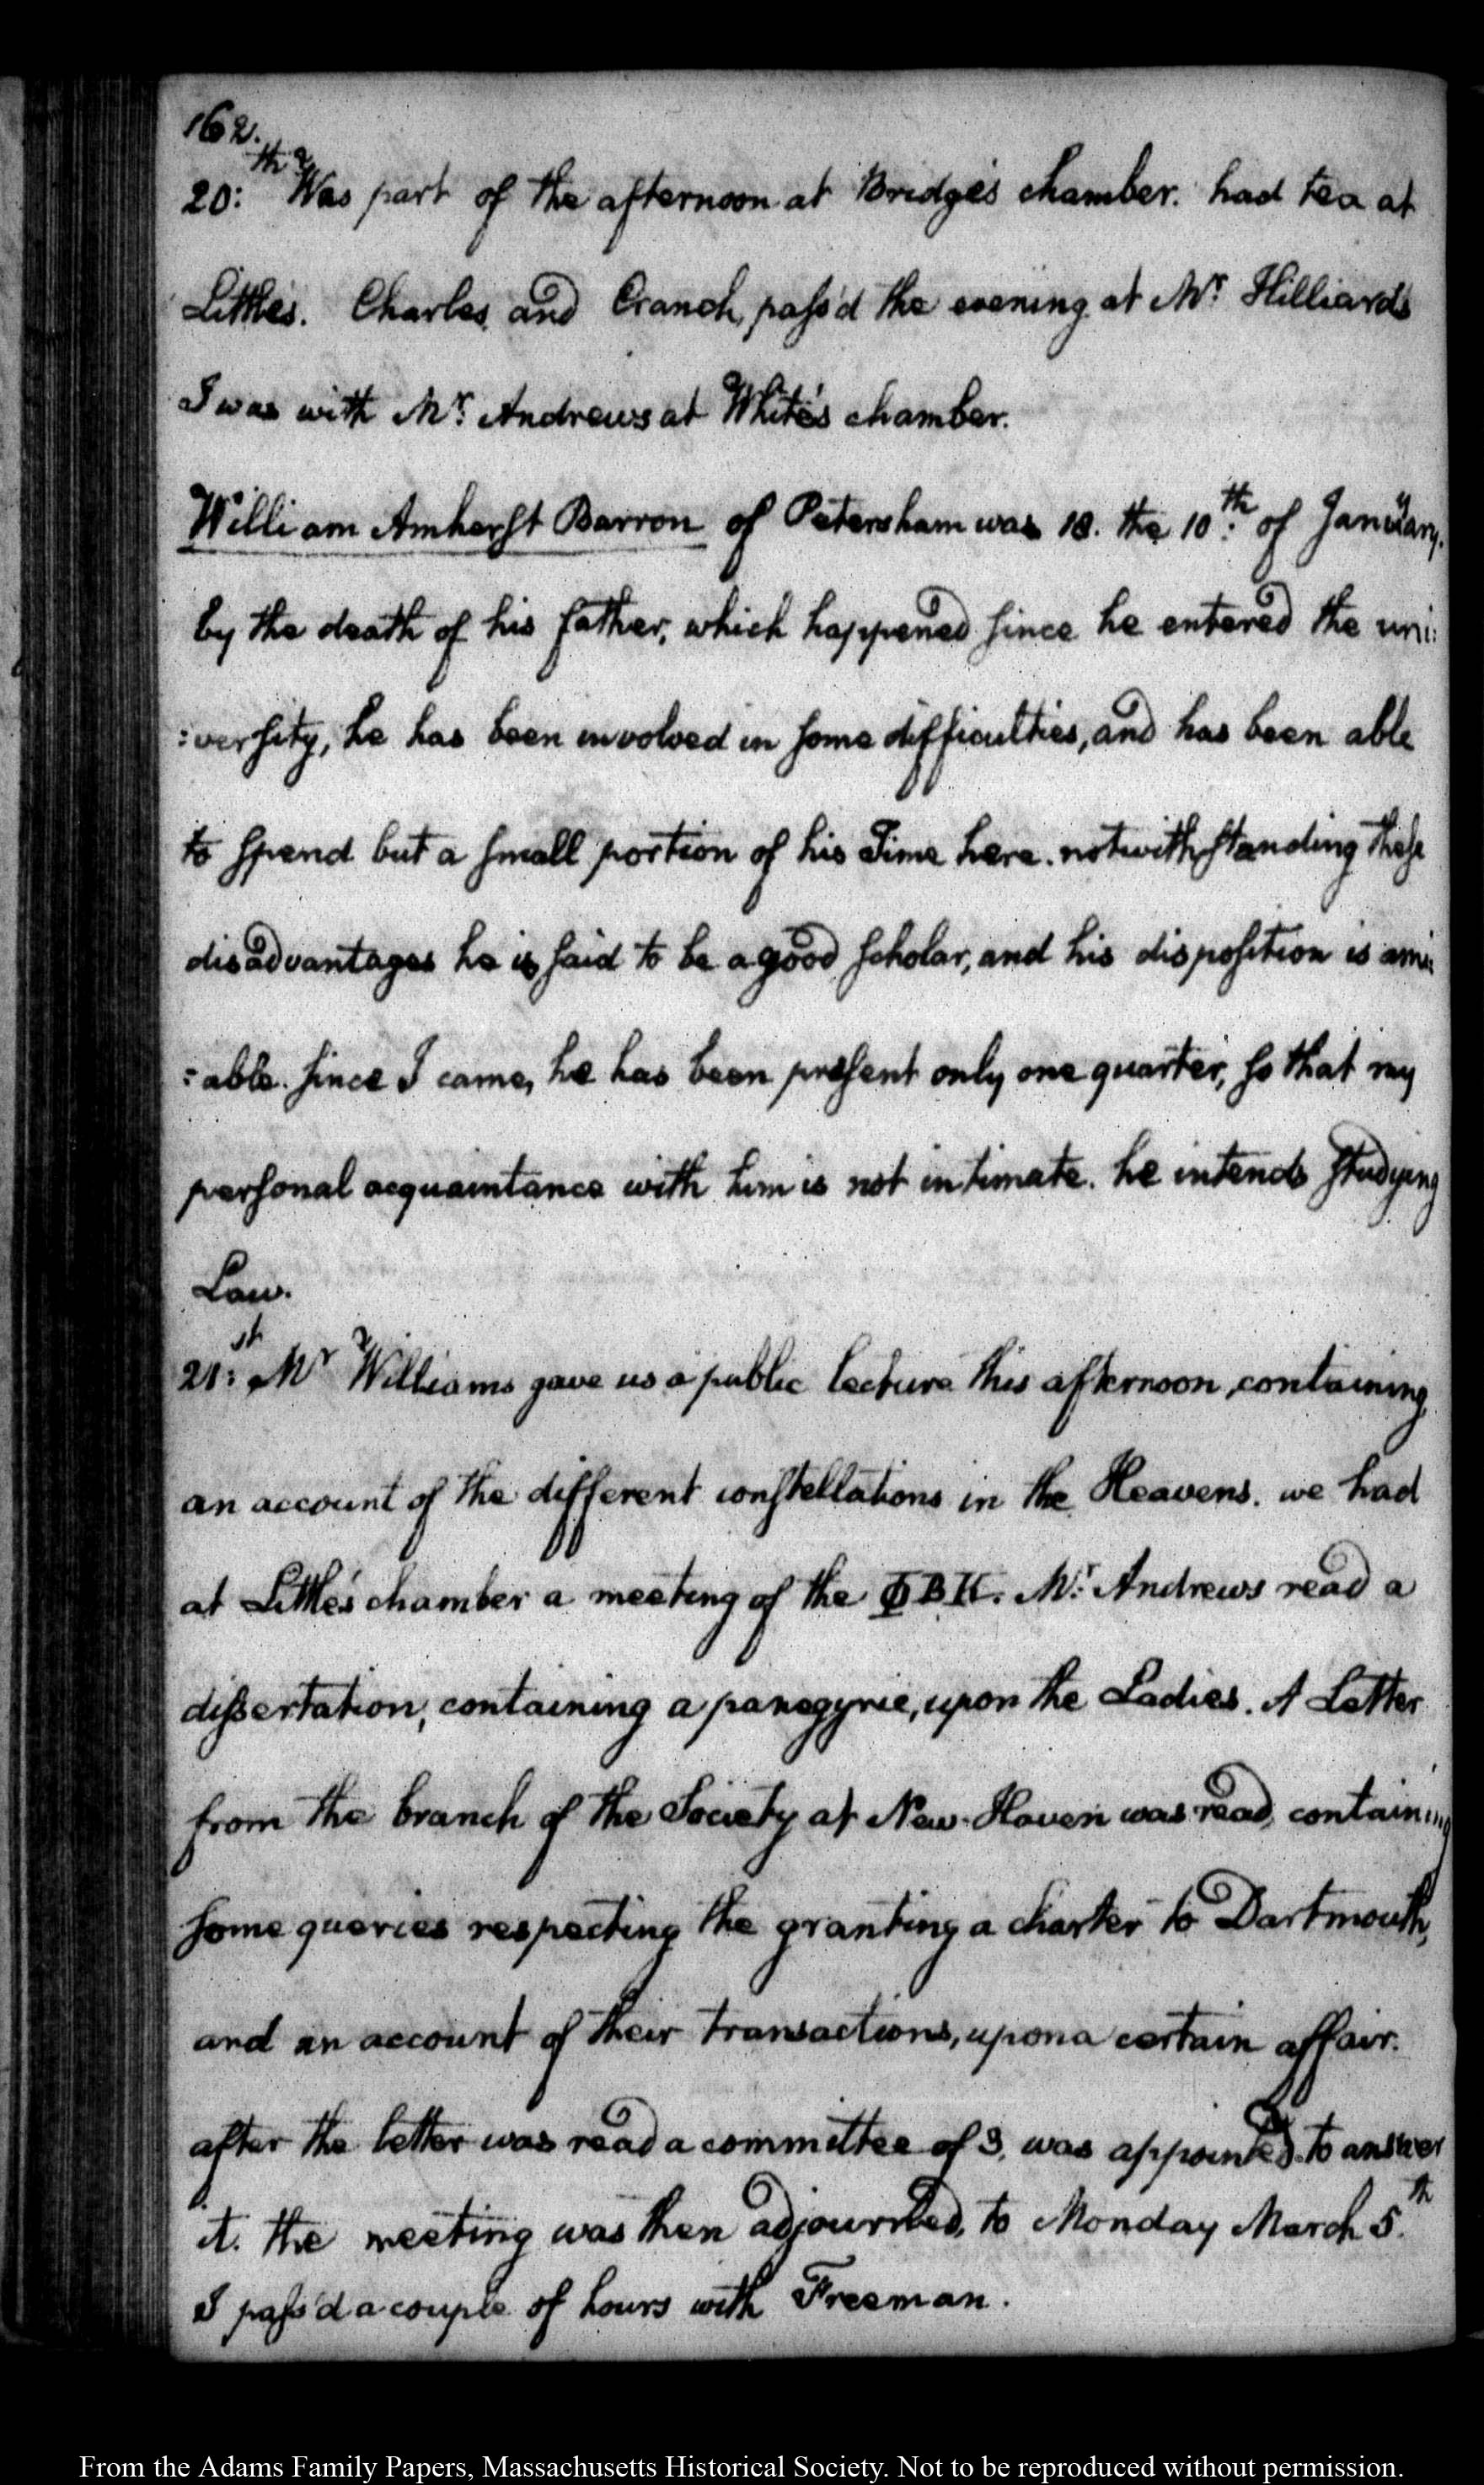 162.
20:th Was part of the afternoon at Bridge's chamber. had tea at
Little's. Charles and Cranch, pass'd the evening at Mr. Hilliards
I was with Mr. Andrews at White's chamber.
William Amherst Barron of Petersham was 18. the 10th. of January.
by the death of his father, which happened since he entered the uni:
:versity, he has been involved in some difficulties, and has been able
to spend but a small portion of his Time here. notwithstanding these
disadvantages he is said to be a good scholar, and his disposition is ami:
:able. since I came, he has been present only one quarter, so that my
personal acquaintance with him is not intimate. he intends studying
Law.
21:st Mr Williams gave us a public lecture this afternoon, containing
an account of the different constellations in the Heavens. we had
at Little's chamber a meeting of the ΦBK. Mr. Andrews read a
dissertation, containing a panegyric, upon the Ladies. A Letter
from the branch of the Society at New-Haven was read, containing
some queries respecting the granting a charter to Dartmouth,
and an account of their transactions, upon a certain affair.
after the letter was read a committee of 3. was appointed to answer
it. the meeting was then adjourned, to Monday March 5.th
I pass'd a couple of hours with Freeman.
From the Adams Family Papers, Massachusetts Historical Society. Not to be reproduced without permission.